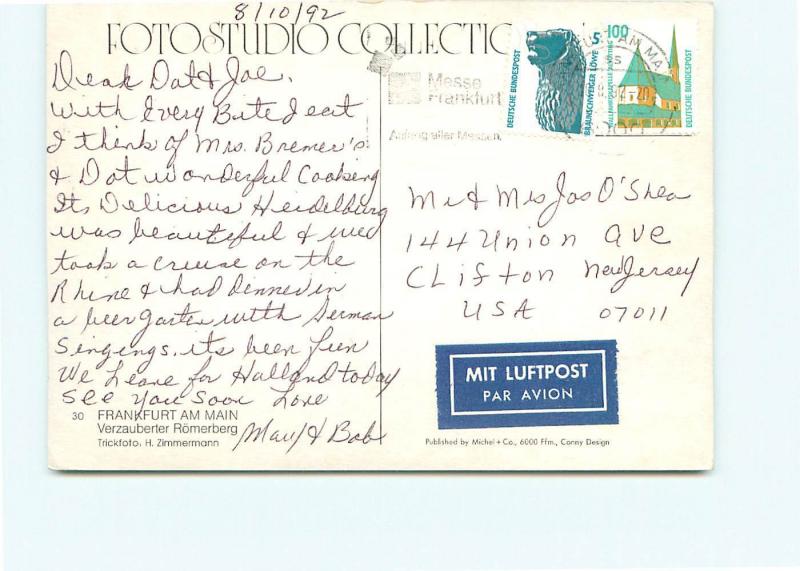 8/10/92
FOTOSTUDIO COLLECTIO
Dear Dot & Joe,
With Every Bite I eat
I think of Mrs. Bremer's
& Dot wonderful Cooking
Its Delicious Heidelburg
was beautiful & we
took a cruise on the
Rhine & had dinner in
a beer garten with German
Singings. its been fun
We Leave for Holland today
See You Soon Love
Mary & Bob
30 FRANKFURT AM MAIN
Verzauberter Römerberg
Trickfoto: H. Zimmermann
Messe
Frankfurt
Anfang aller Messen.
DEUTSCHE BUNDESPOST
5
BRAUNSCHWEIGER LÖWE
100
DEUTSCHE BUNDESPOST
Mr & Mrs Jos O'Shea
144 Union ave
Clifton New Jersey
USA 07011
MIT LUFTPOST
PAR AVION
Published by Michel + Co., 6000 Ffm., Conny Design